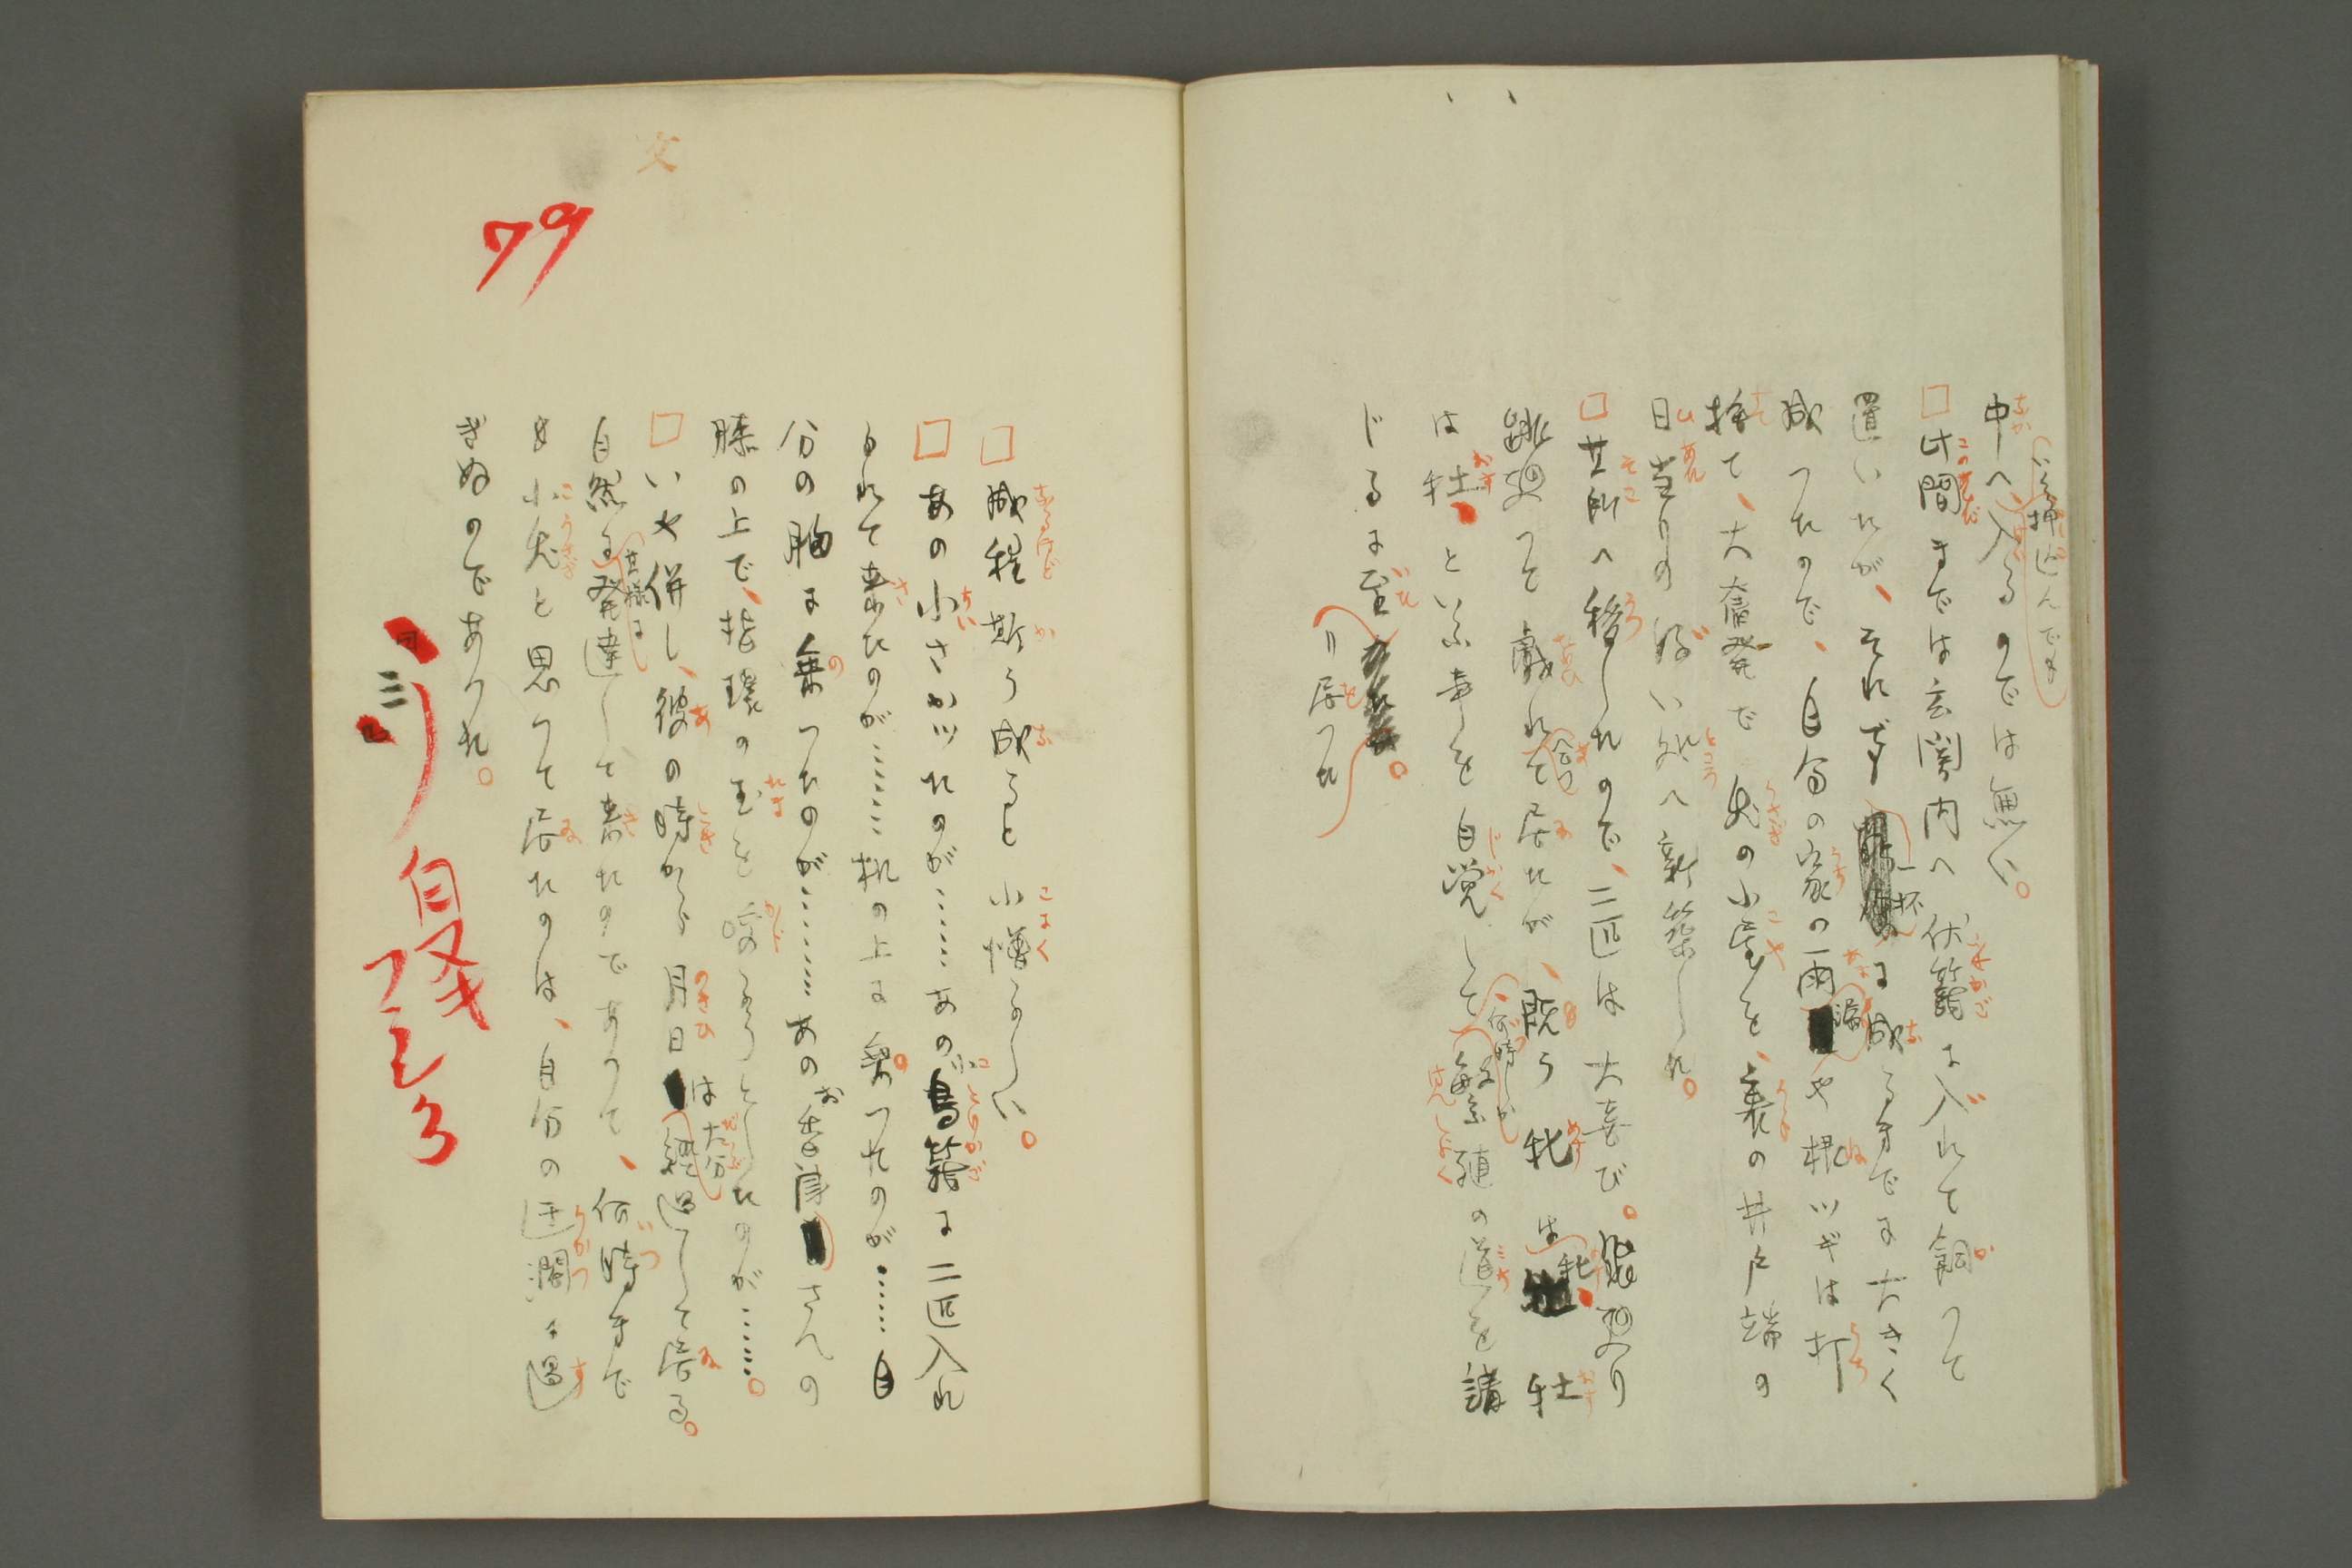 中へ入るのでは無い。
□此間までは玄関内へ伏籠に入れて飼つて
置いたが、それ一杯に成るまでに大きく
成つたので、自分の家の雨漏や根ツギは打
捨て、大奮発で兎の小屋を、裏の井戸端の
日当りの好い処へ新築した。
□其所へ移したので、二匹は大喜び。
跳廻つて戯れて居たが、既う牝は牝、牡
は牡、といふ事を自覚して何時しか繁殖の道を講
じるに至
居つた
79
□成程斯う成ると小憎らしい。
□あの小さかツたのが……あの小鳥籠に二匹入れ
られて来たのが……机の上に乗つたのが……自
分の胸に乗つたのが……あのお
さんの
膝の上で、指環の玉を
したのが……。
□いや併し、彼の時から月日は大分経過して居る。
自然に其様に発達して来たのであつて、何時まで
も小兎と思つて居たのは、自分の迂濶に過
ぎぬのであつた。